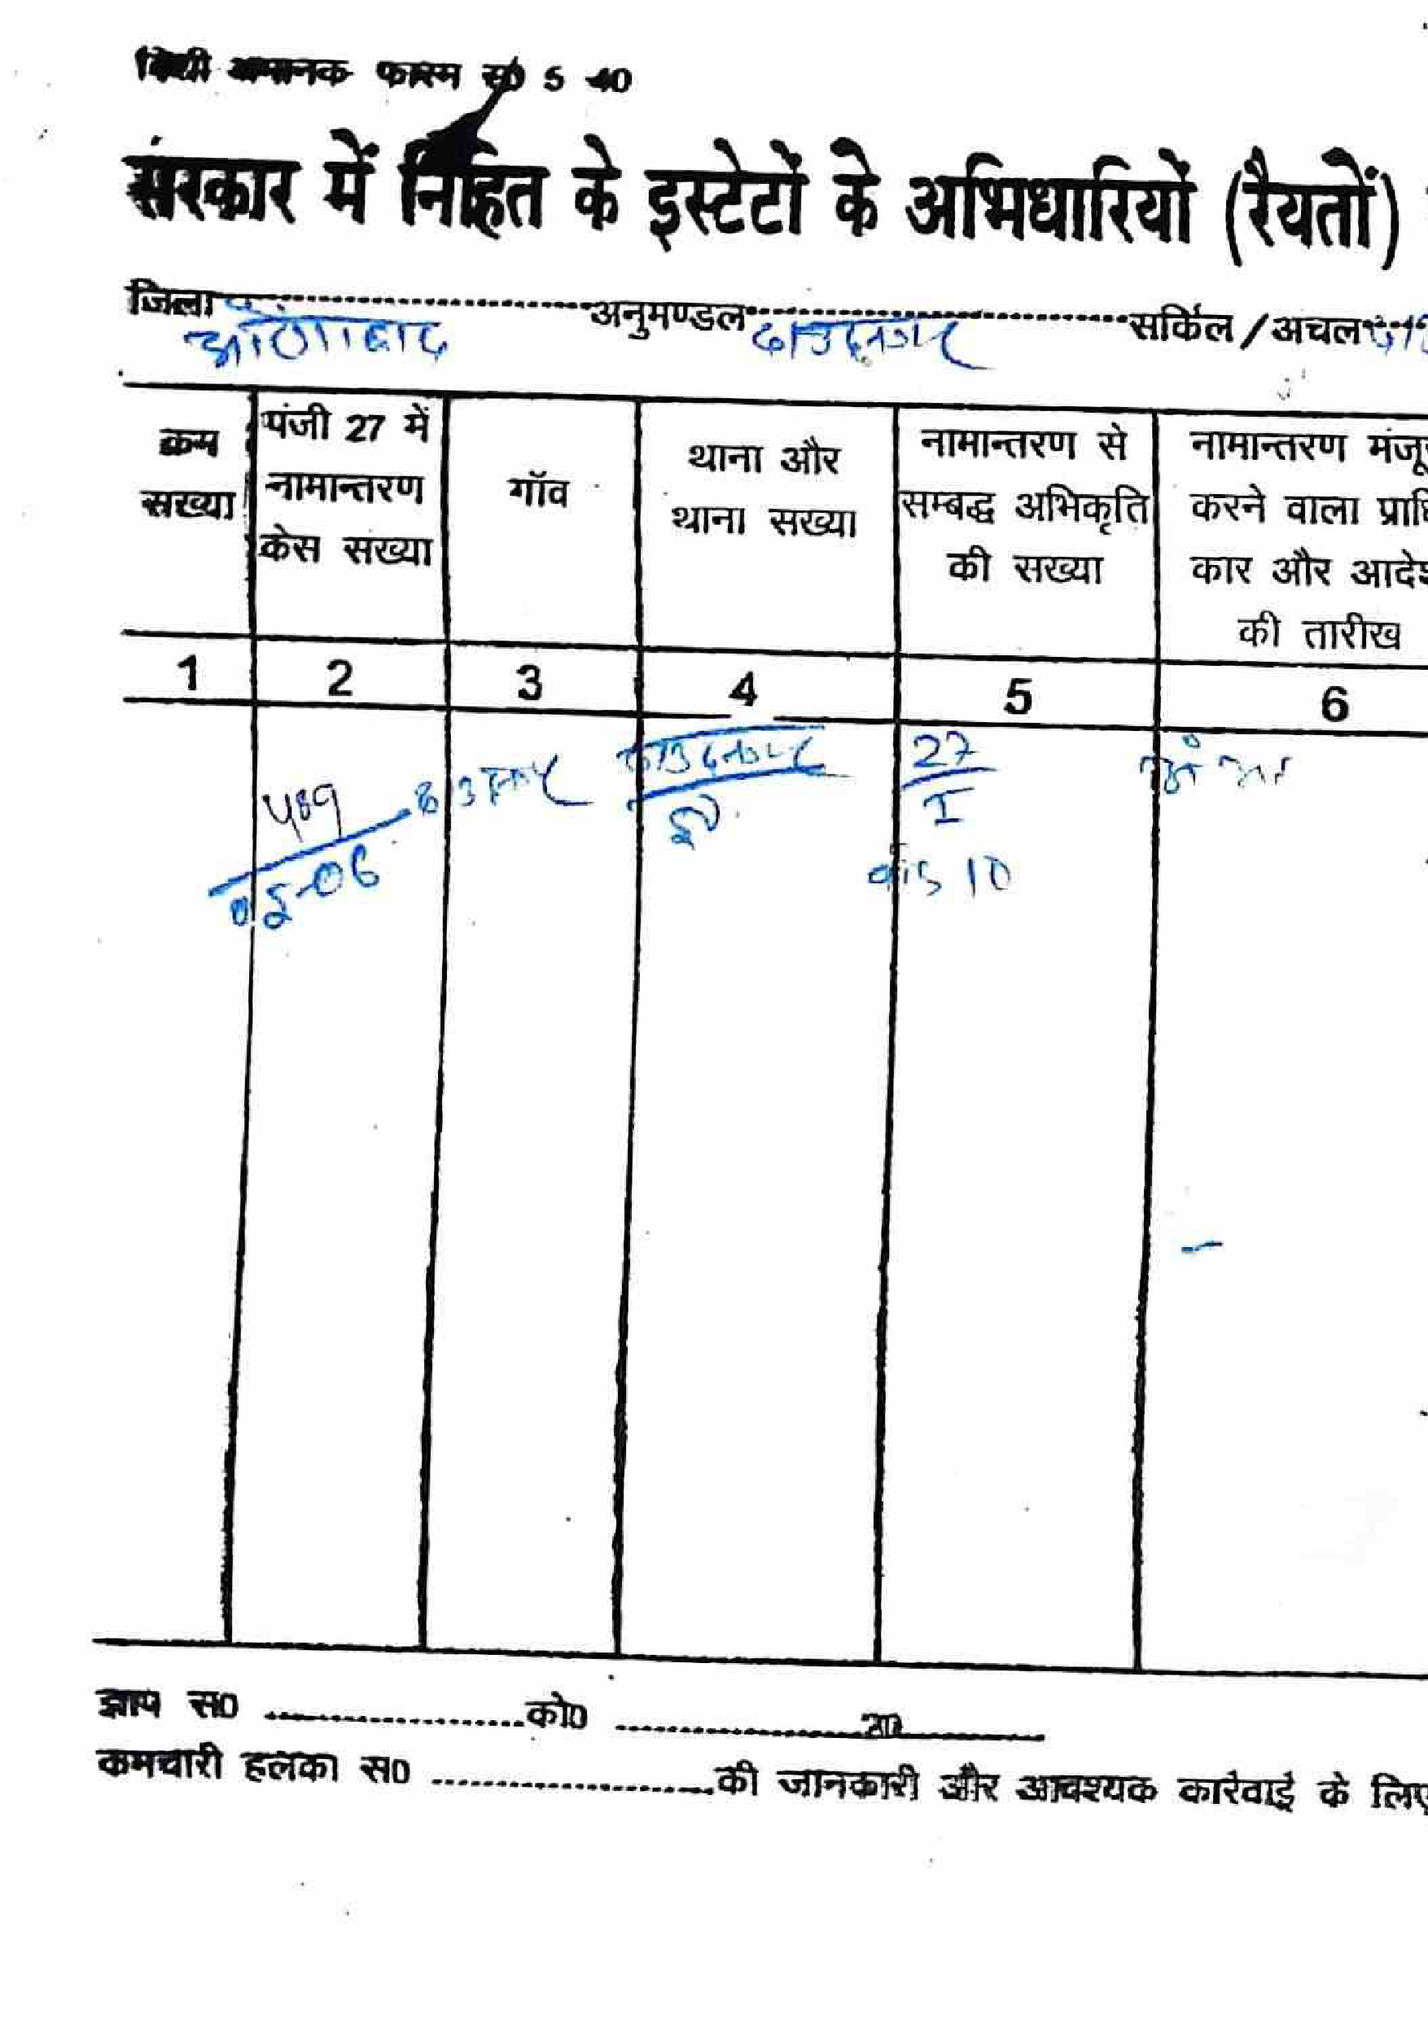 फारम स0 5 40
सरकार में निहित के इस्टेटों के अभिधारियों (रैयतों)
जिला औरंगाबाद अनुमण्डल दाउदनगर सर्किल / अचल
कम सख्या
पंजी 27 में नामान्तरण केस सख्या
गॉव
थाना और थाना सख्या
नामान्तरण से सम्बद्ध अभिकृति की सख्या
नामान्तरण करने वाला और की तारीख
1 2 3 4 5 6
दाउदनगर दाउदनगर 27
I
06
10
ज्ञाप स0 को0 20
कमचारी हलका स0 की जानकारी और आवश्यक कारेवाई के